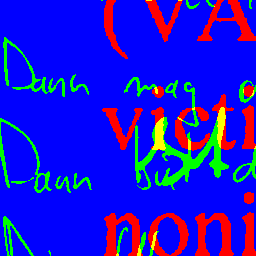 (VA
Dann mag
victi
Dann bist d
noni